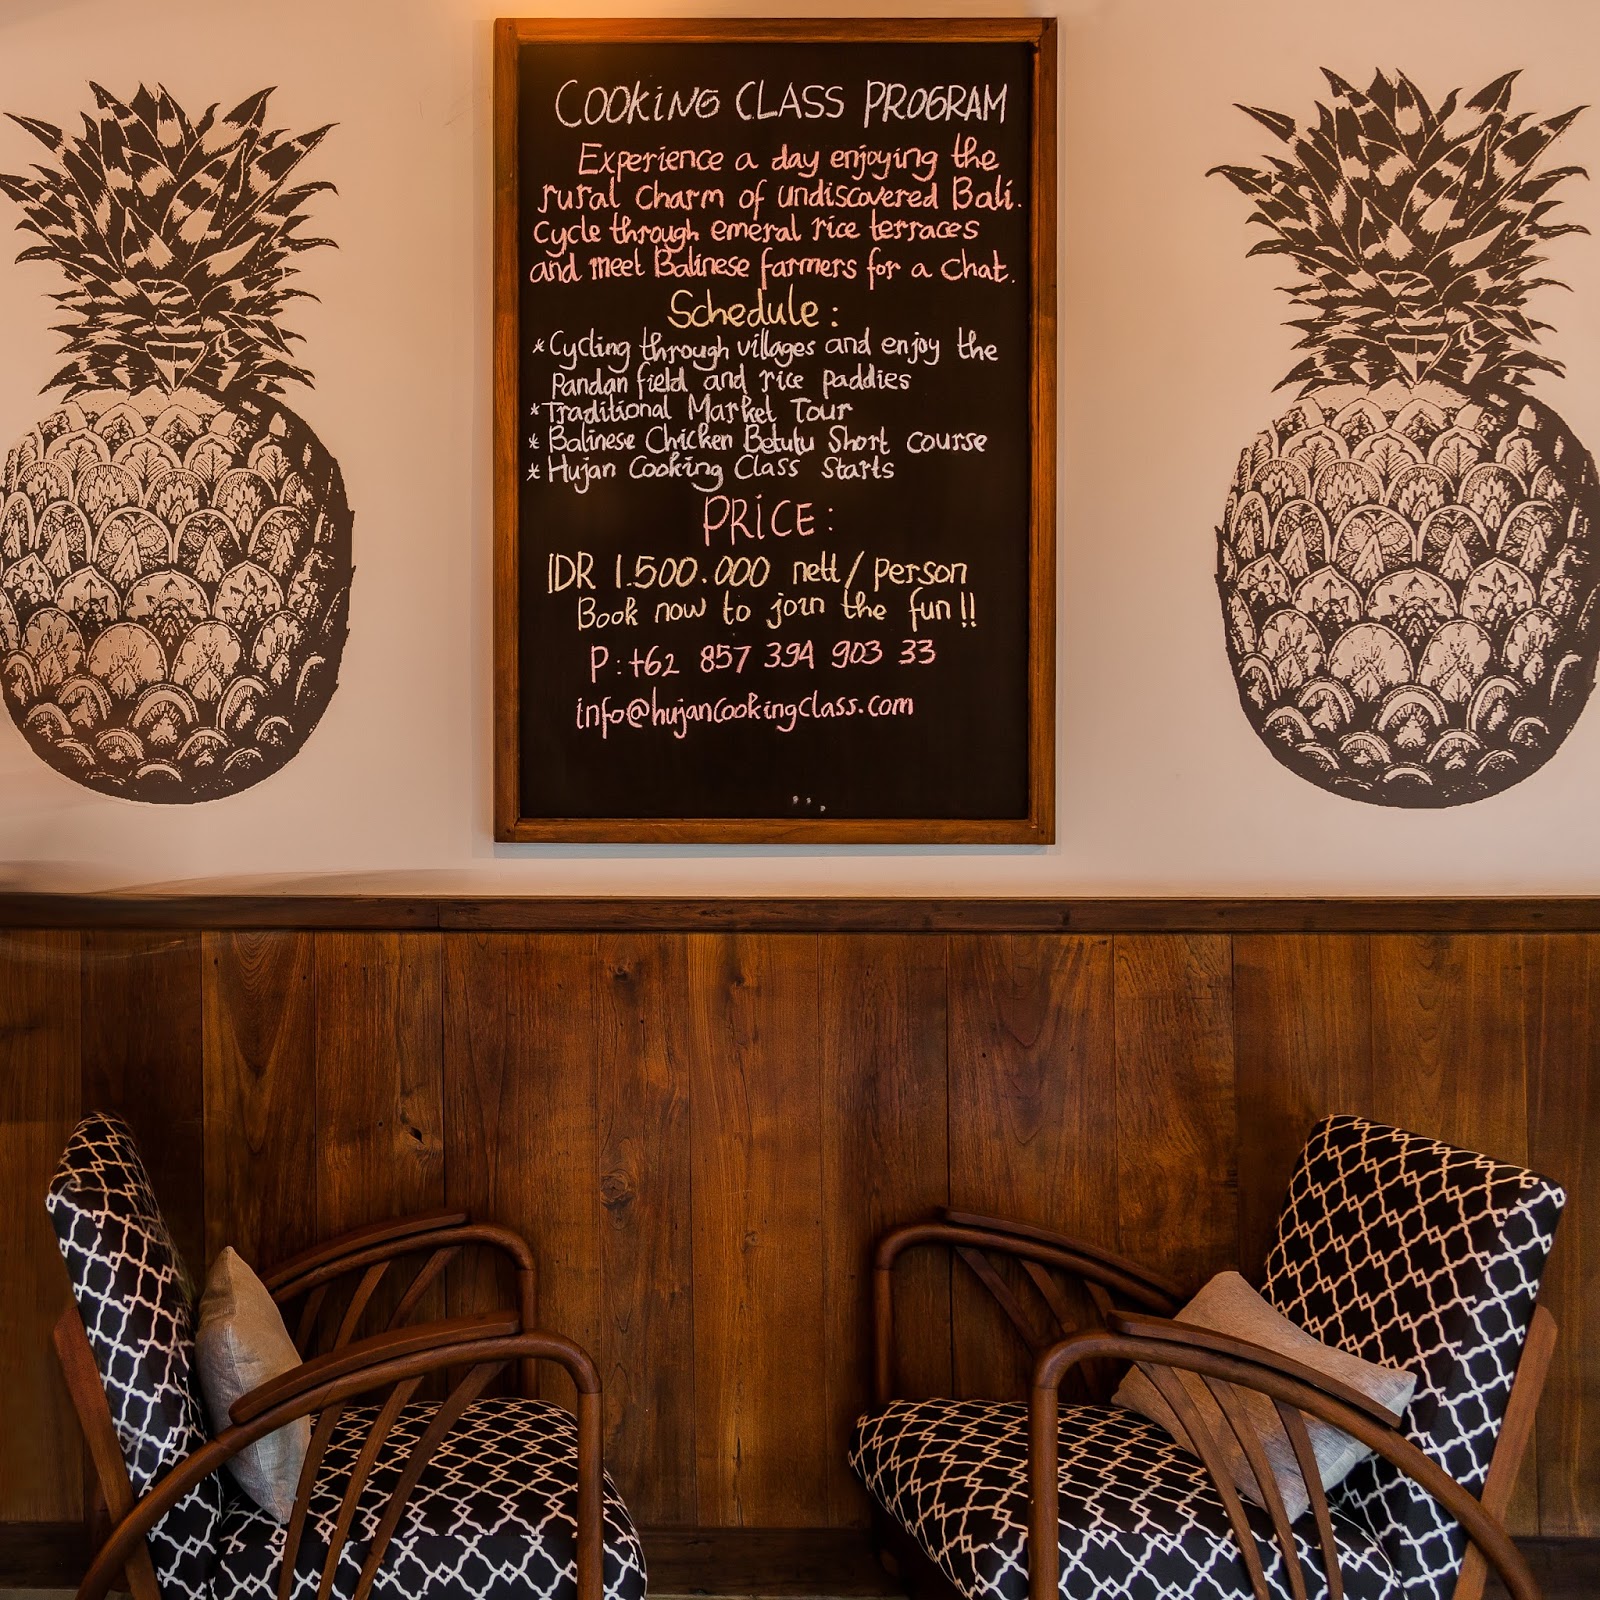 COOKING CLASS PROGRAM
Experience a day enjoying the
rural charm of undiscovered Bali.
Cycle through emeral rice terraces
and meet Balinese farmers for a chat.
Schedule:
* Cycling through villages and enjoy the
Pandan field and rice paddies
* Traditional Market Tour
* Balinese Chicken Betutu Short course
* Hujan Cooking Class Starts
PRICE:
IDR 1.500.000 nett/person
Book now to join the fun!!
P: +62 857 394 903 33
info@hujancookingclass.com